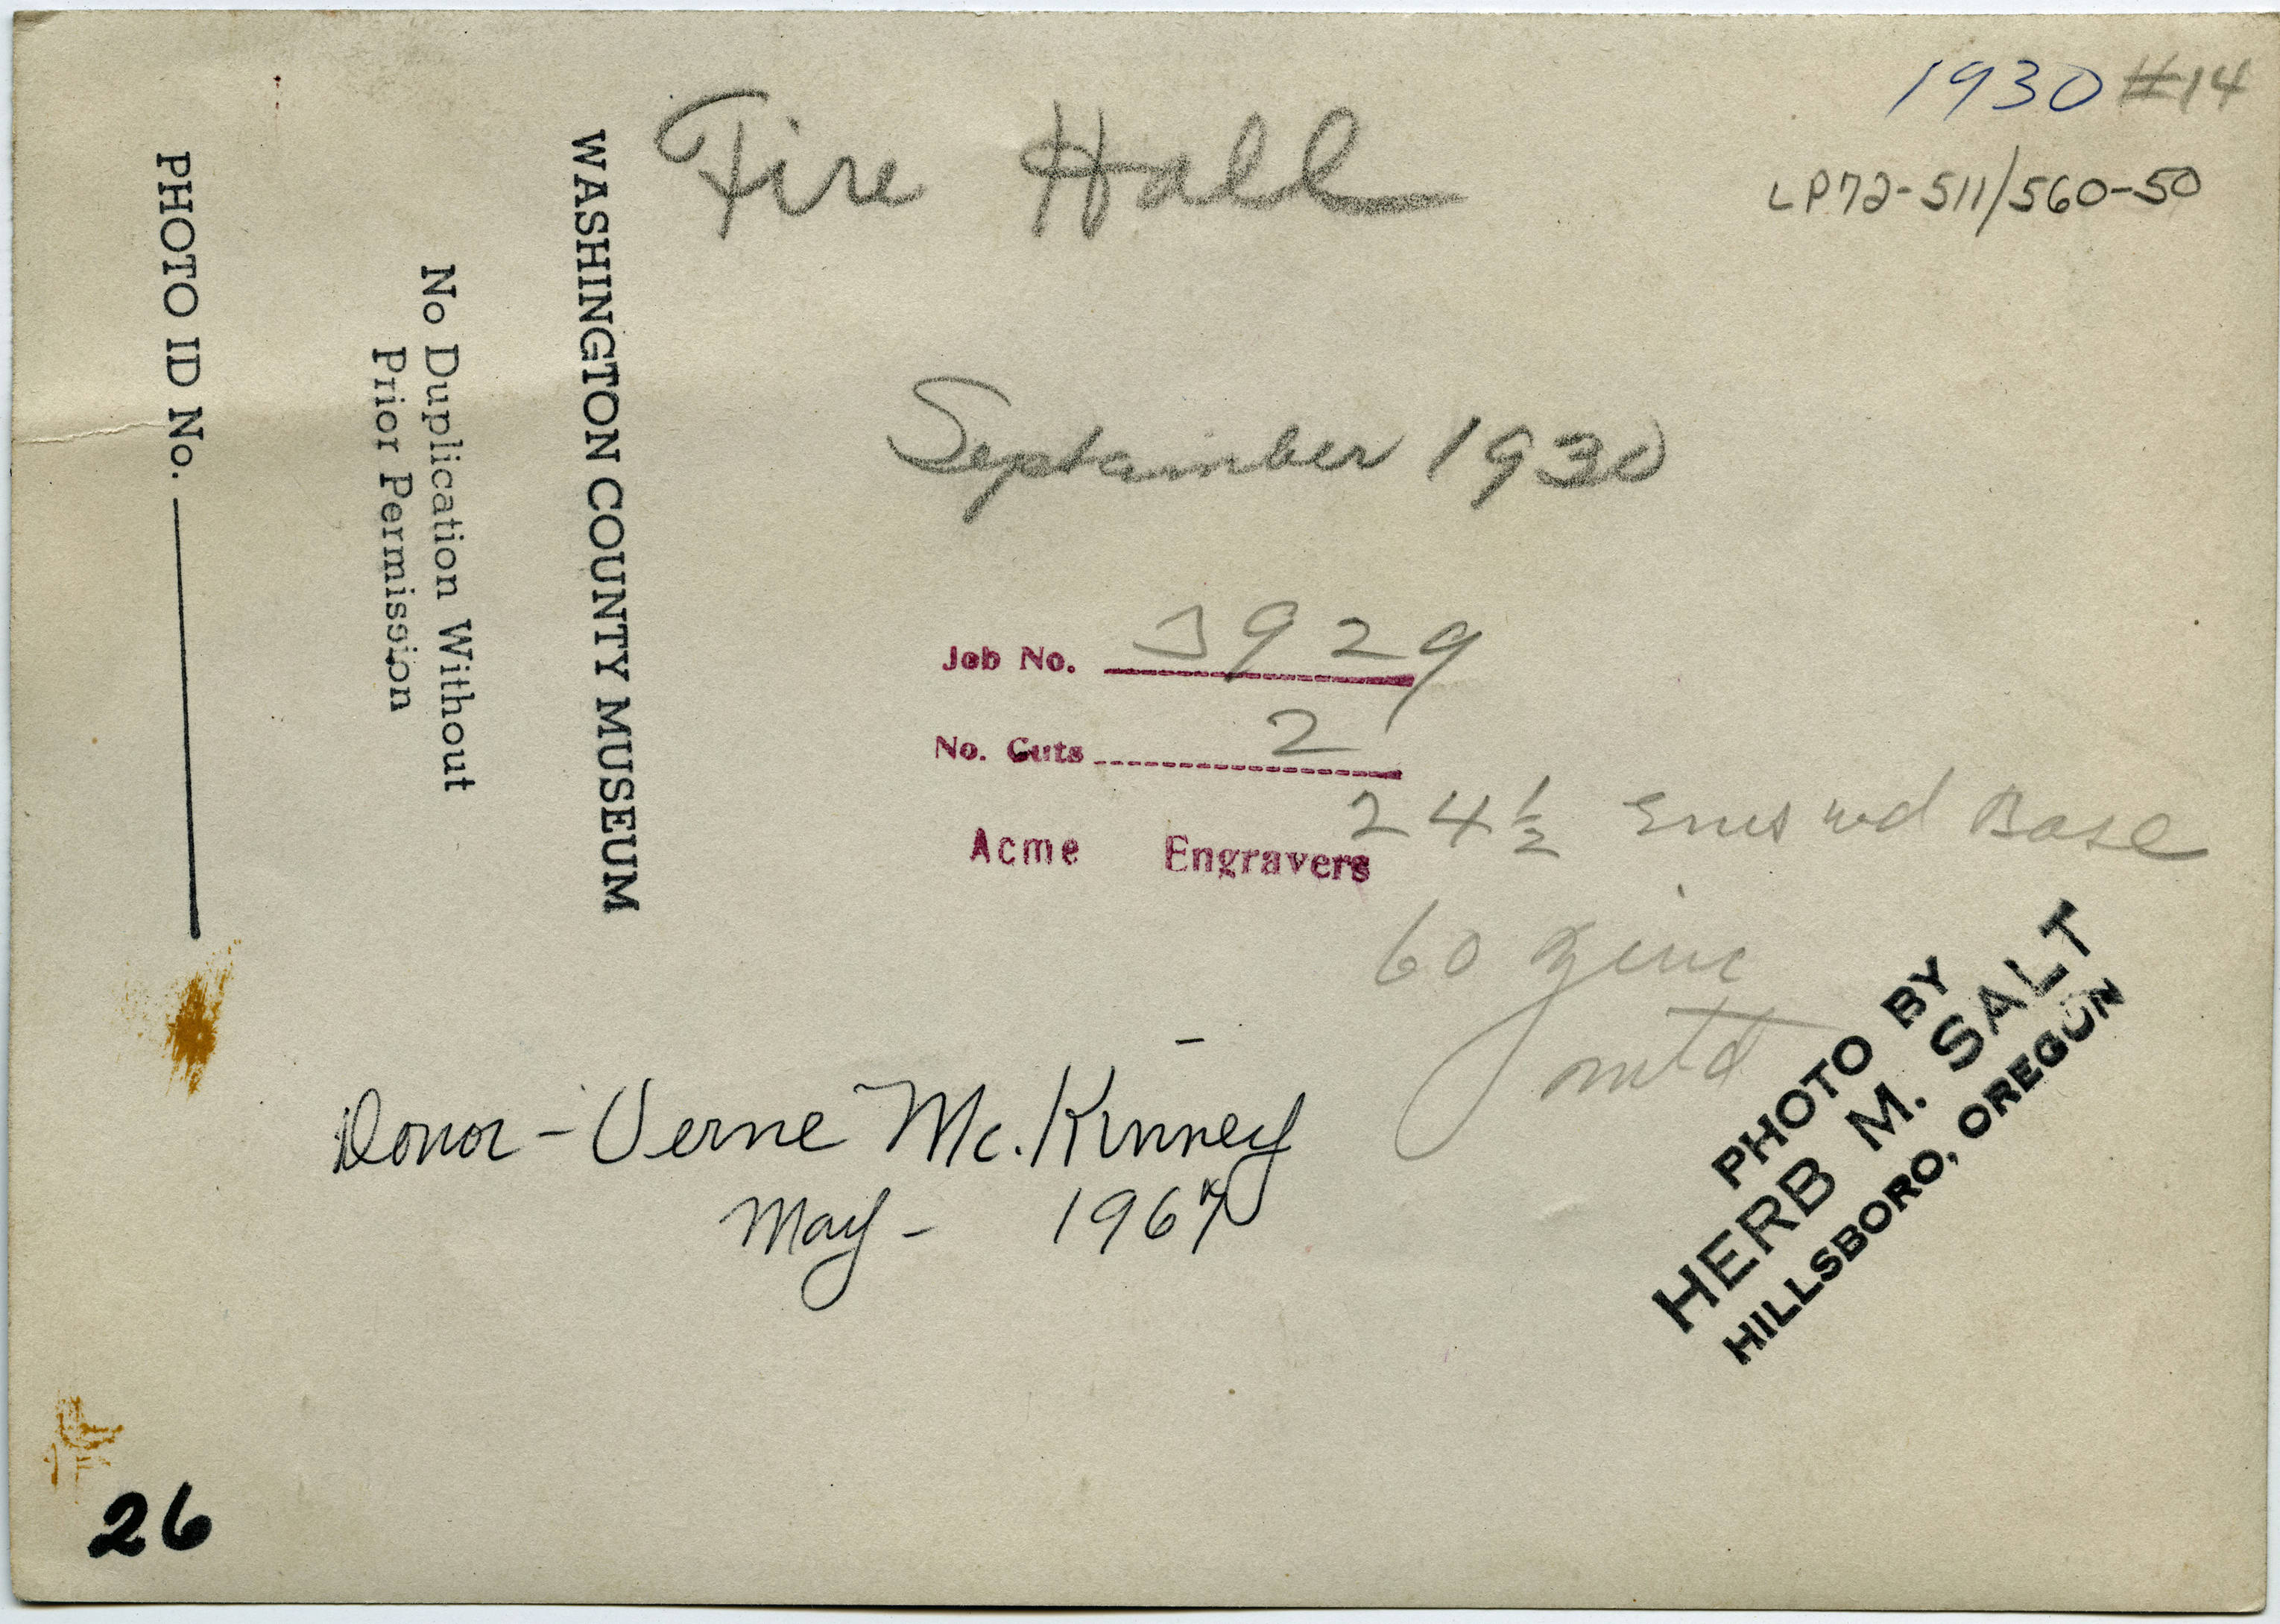 1930 #14
LP72-511/560-50
Fire Hall
September 1930
Job No. 3929
No. Cuts 2
Acme Engravers
24 1/2 wd Base
60 zinc
mtd
PHOTO BY
HERB M. SALT
HILLSBORO, OREGON
Donor - Verne Mc. Kinney
May - 1967
WASHINGTON COUNTY MUSEUM
No Duplication Without
Prior Permission
PHOTO ID No.
26